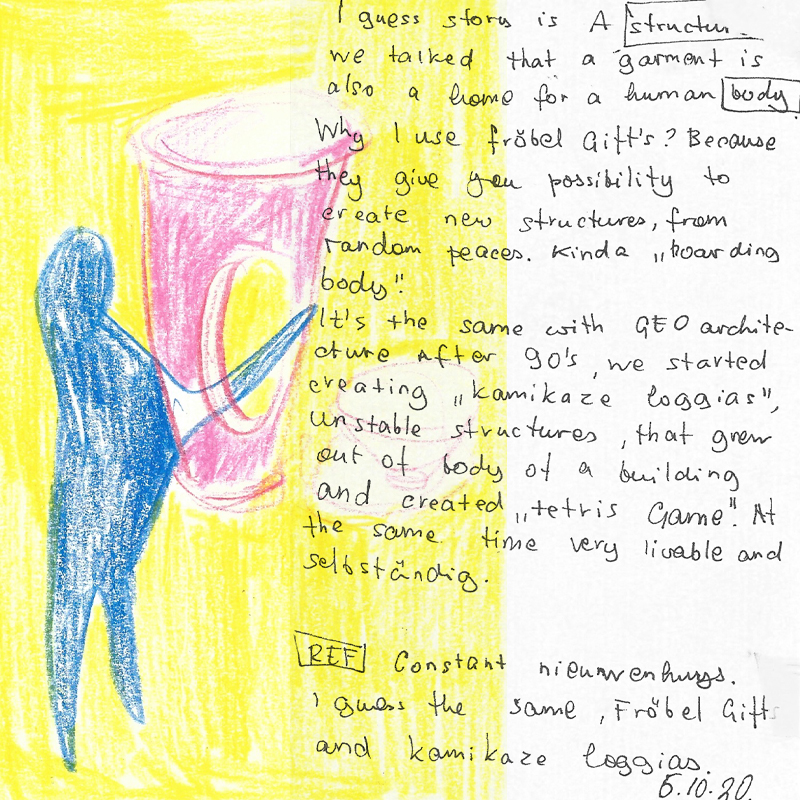 I guess story is A structur
we talked that a garment is
also a home for a human body.
Why I use fröbel Gift's? Because
they give you possibility to
create new structures, from
random peaces. Kinda „boarding
body".
It's the same with GEO archite-
cture After 90's, we started
creating „kamikaze loggias",
unstable structures, that grew
out of body of a building
and created „tetris Game". At
the same time very livable and
selbständig.
REF Constant nieuwenhuys.
I guess the same, Fröbel Gifts
and kamikaze loggias.
5.10.20.